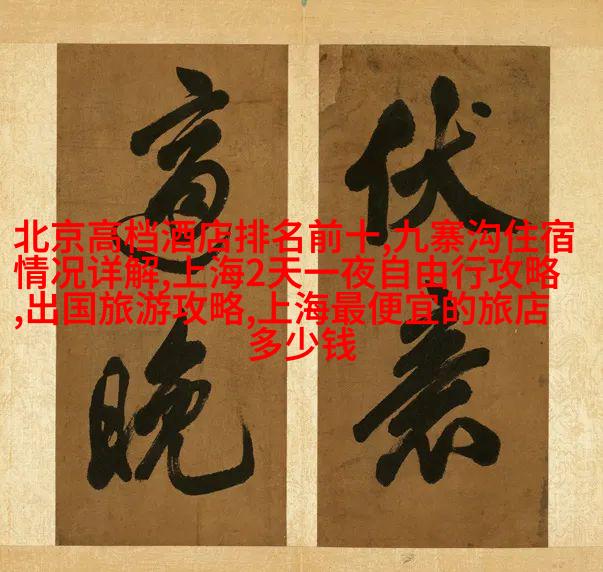 北京高档酒店排名前十,九寨沟住宿
情况详解,上海2天一夜自由行攻略
,出国旅游攻略,上海最便宜的旅店
多少钱
伏
晚